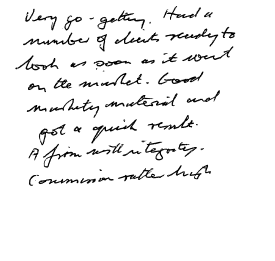 Very go-getting. Had a
number of clients ready to
look as soon as it went
on the market. Good
marketing material and
got a quick result.
A firm with integrity.
Commission rather high